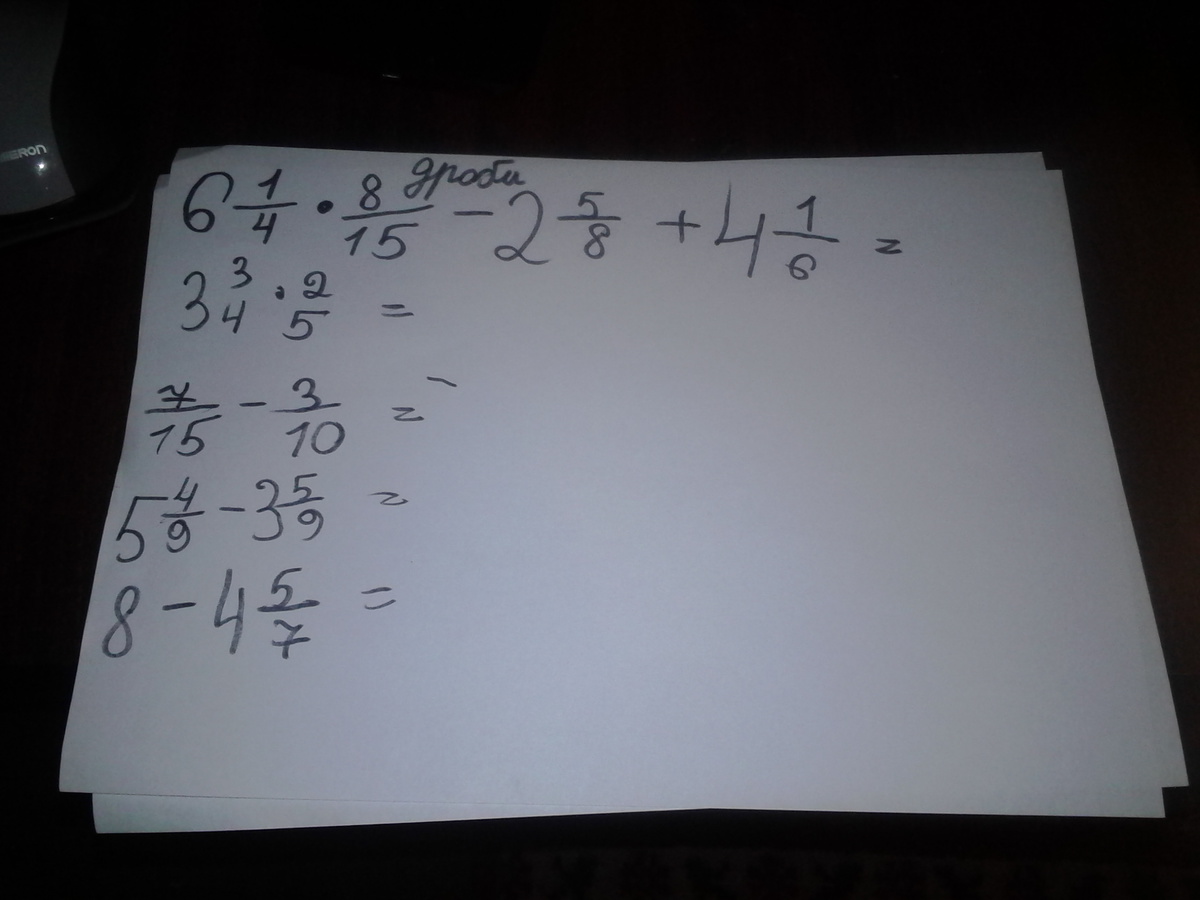 дроби
6 1/4 · 8/15 - 2 5/8 + 4 1/6 =
3 3/4 · 2/5 =
7/15 - 3/10 =
5 4/9 - 3 5/9 =
8 - 4 5/7 =